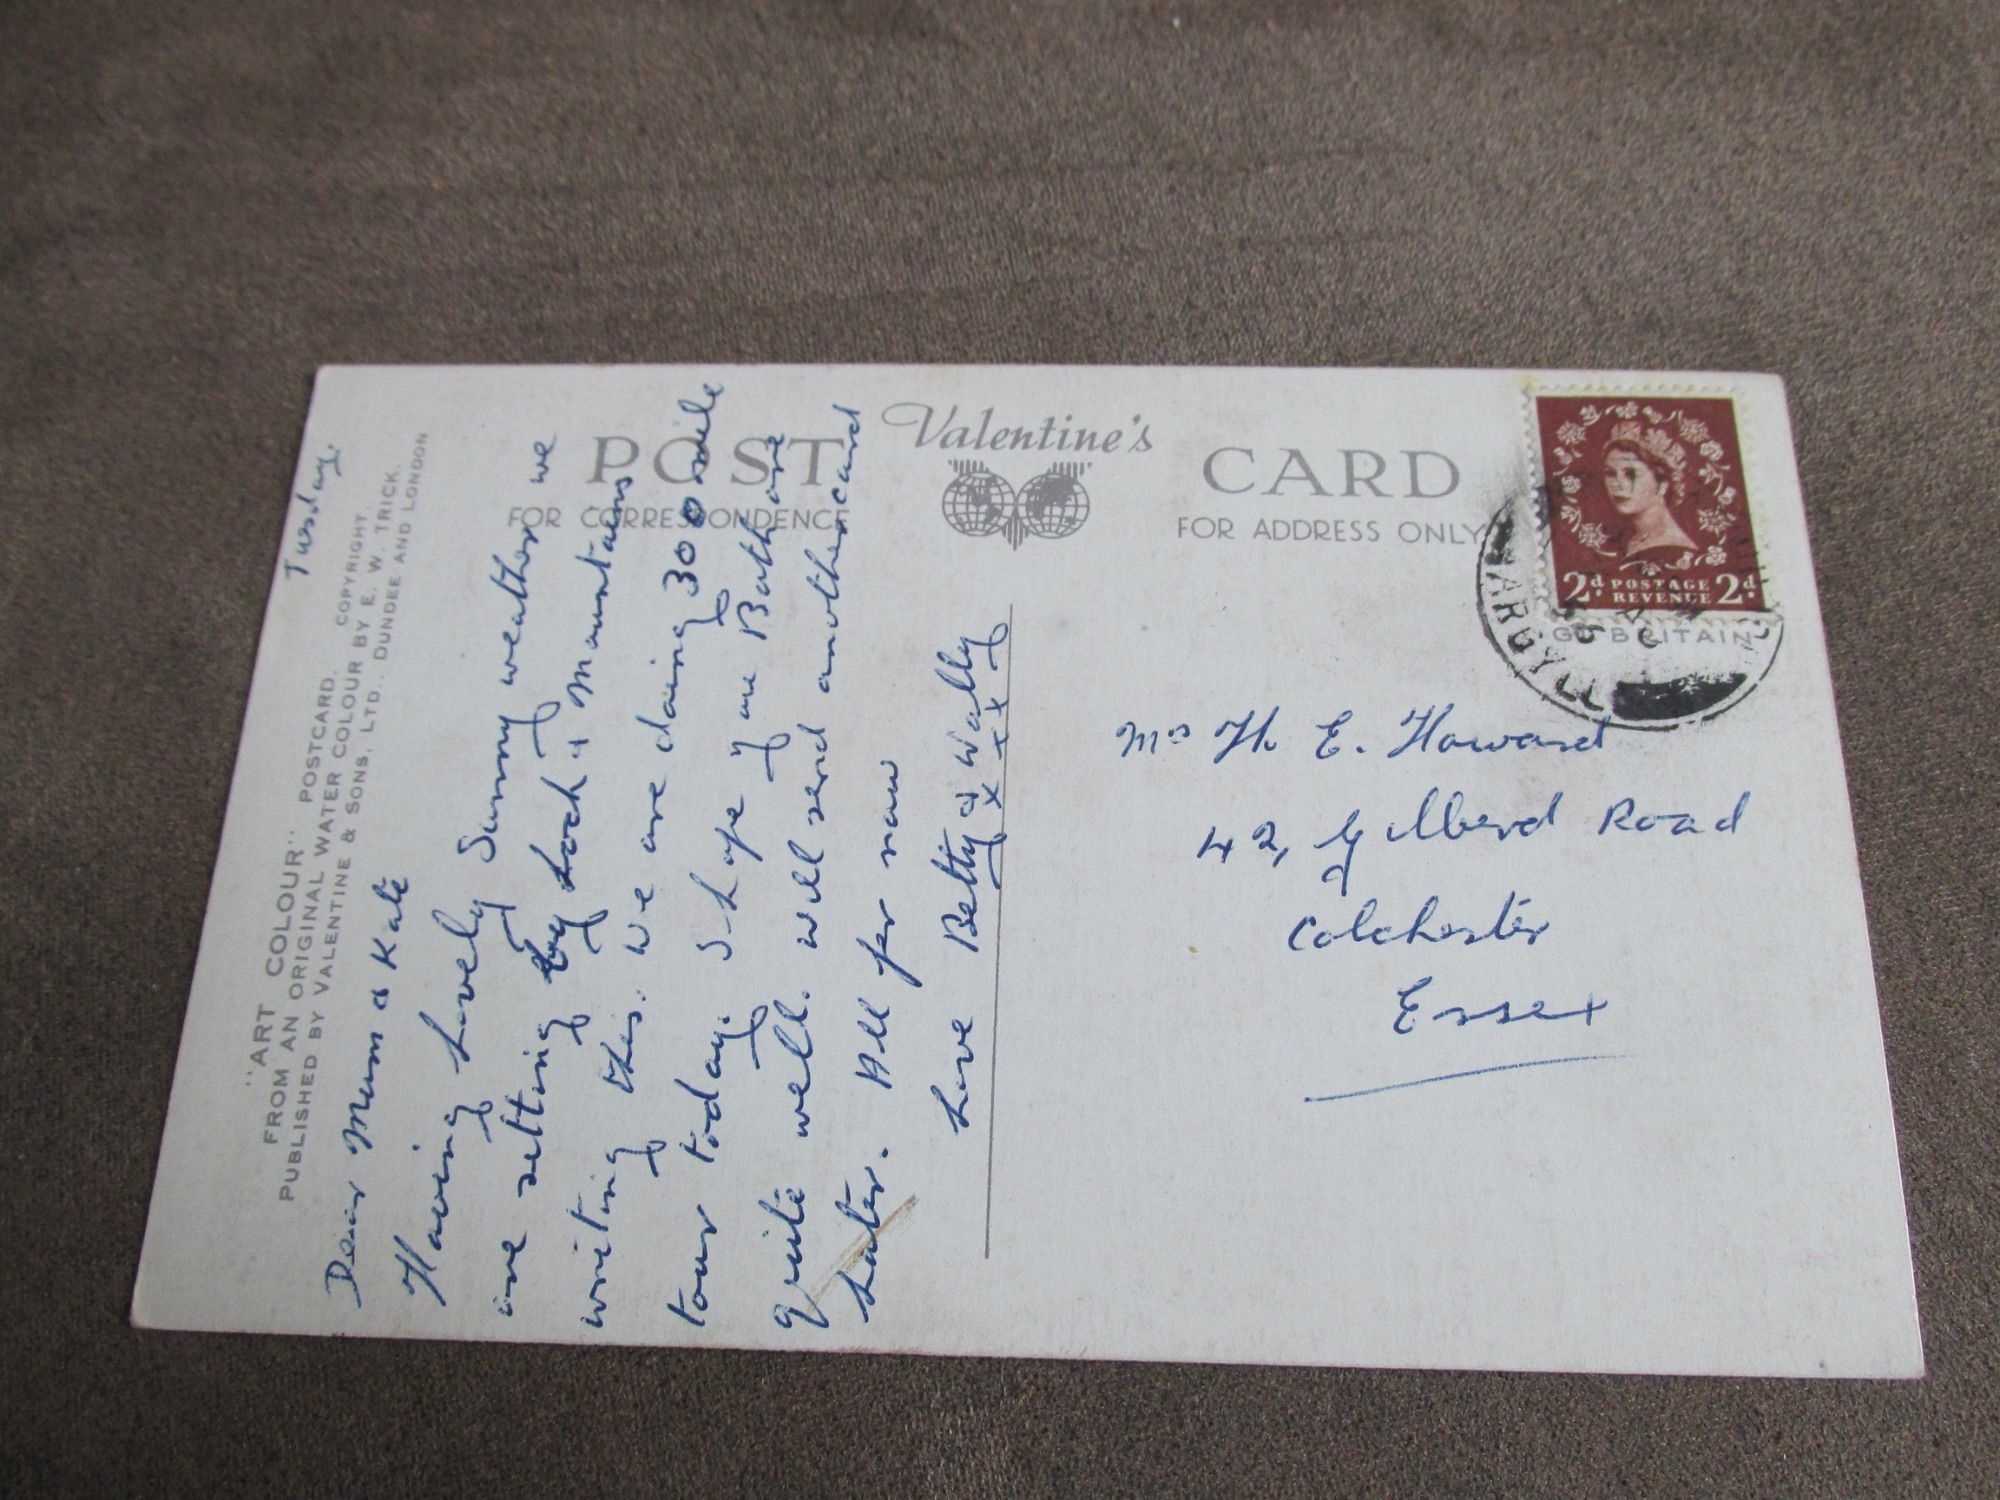 "ART COLOUR" POSTCARD.
FROM AN ORIGINAL WATER COLOUR BY E. W. TRICK. COPYRIGHT.
PUBLISHED BY VALENTINE & SONS, LTD., DUNDEE AND LONDON
Tuesday.
Dear Mum & Kate
Having Lovely Sunny weather, we
are sitting by Loch & Mountains
writing this. We are doing 300 mile
tour today. I hope you Both are
quite well. will send another card
Later. All for now
Love Betty & Wally
x x x x
POST
FOR CORRESPONDENCE
Valentine's
CARD
FOR ADDRESS ONLY
2d POSTAGE REVENUE 2d
GT BRITAIN
ARGYLL
Mrs H. E. Howard
42, Gilberd Road
Colchester
Essex